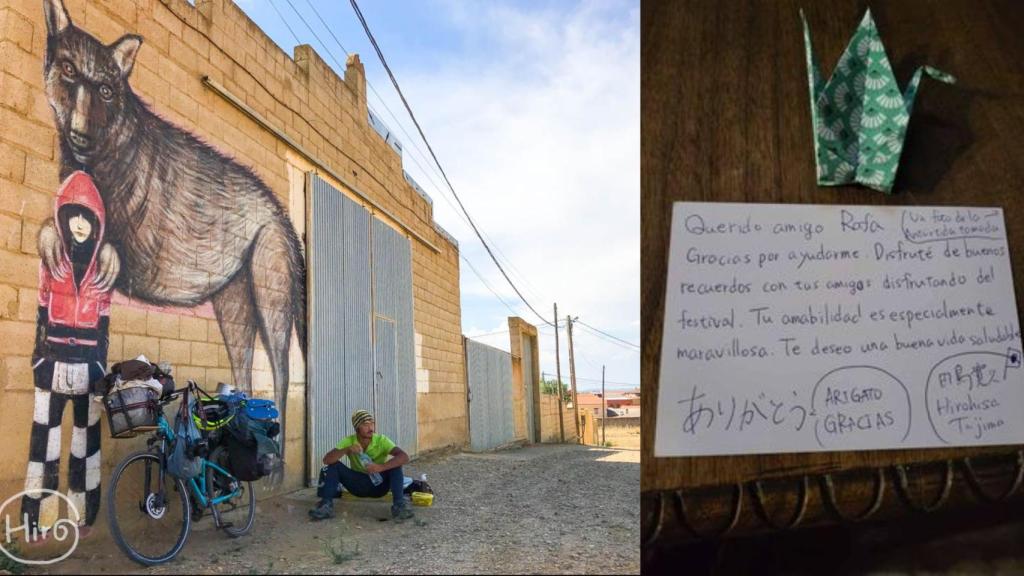 Hiro
Querido amigo Rafa
(Un foto de la →
Querida tomada
Gracias por ayudarme. Disfruté de buenos
recuerdos con tus amigos disfrutando del
festival. Tu amabilidad es especialmente
maravillosa. Te deseo una buena vida saludable
ありがとう
ARIGATO
GRACIAS
田島寛久
Hirohisa
Tajima